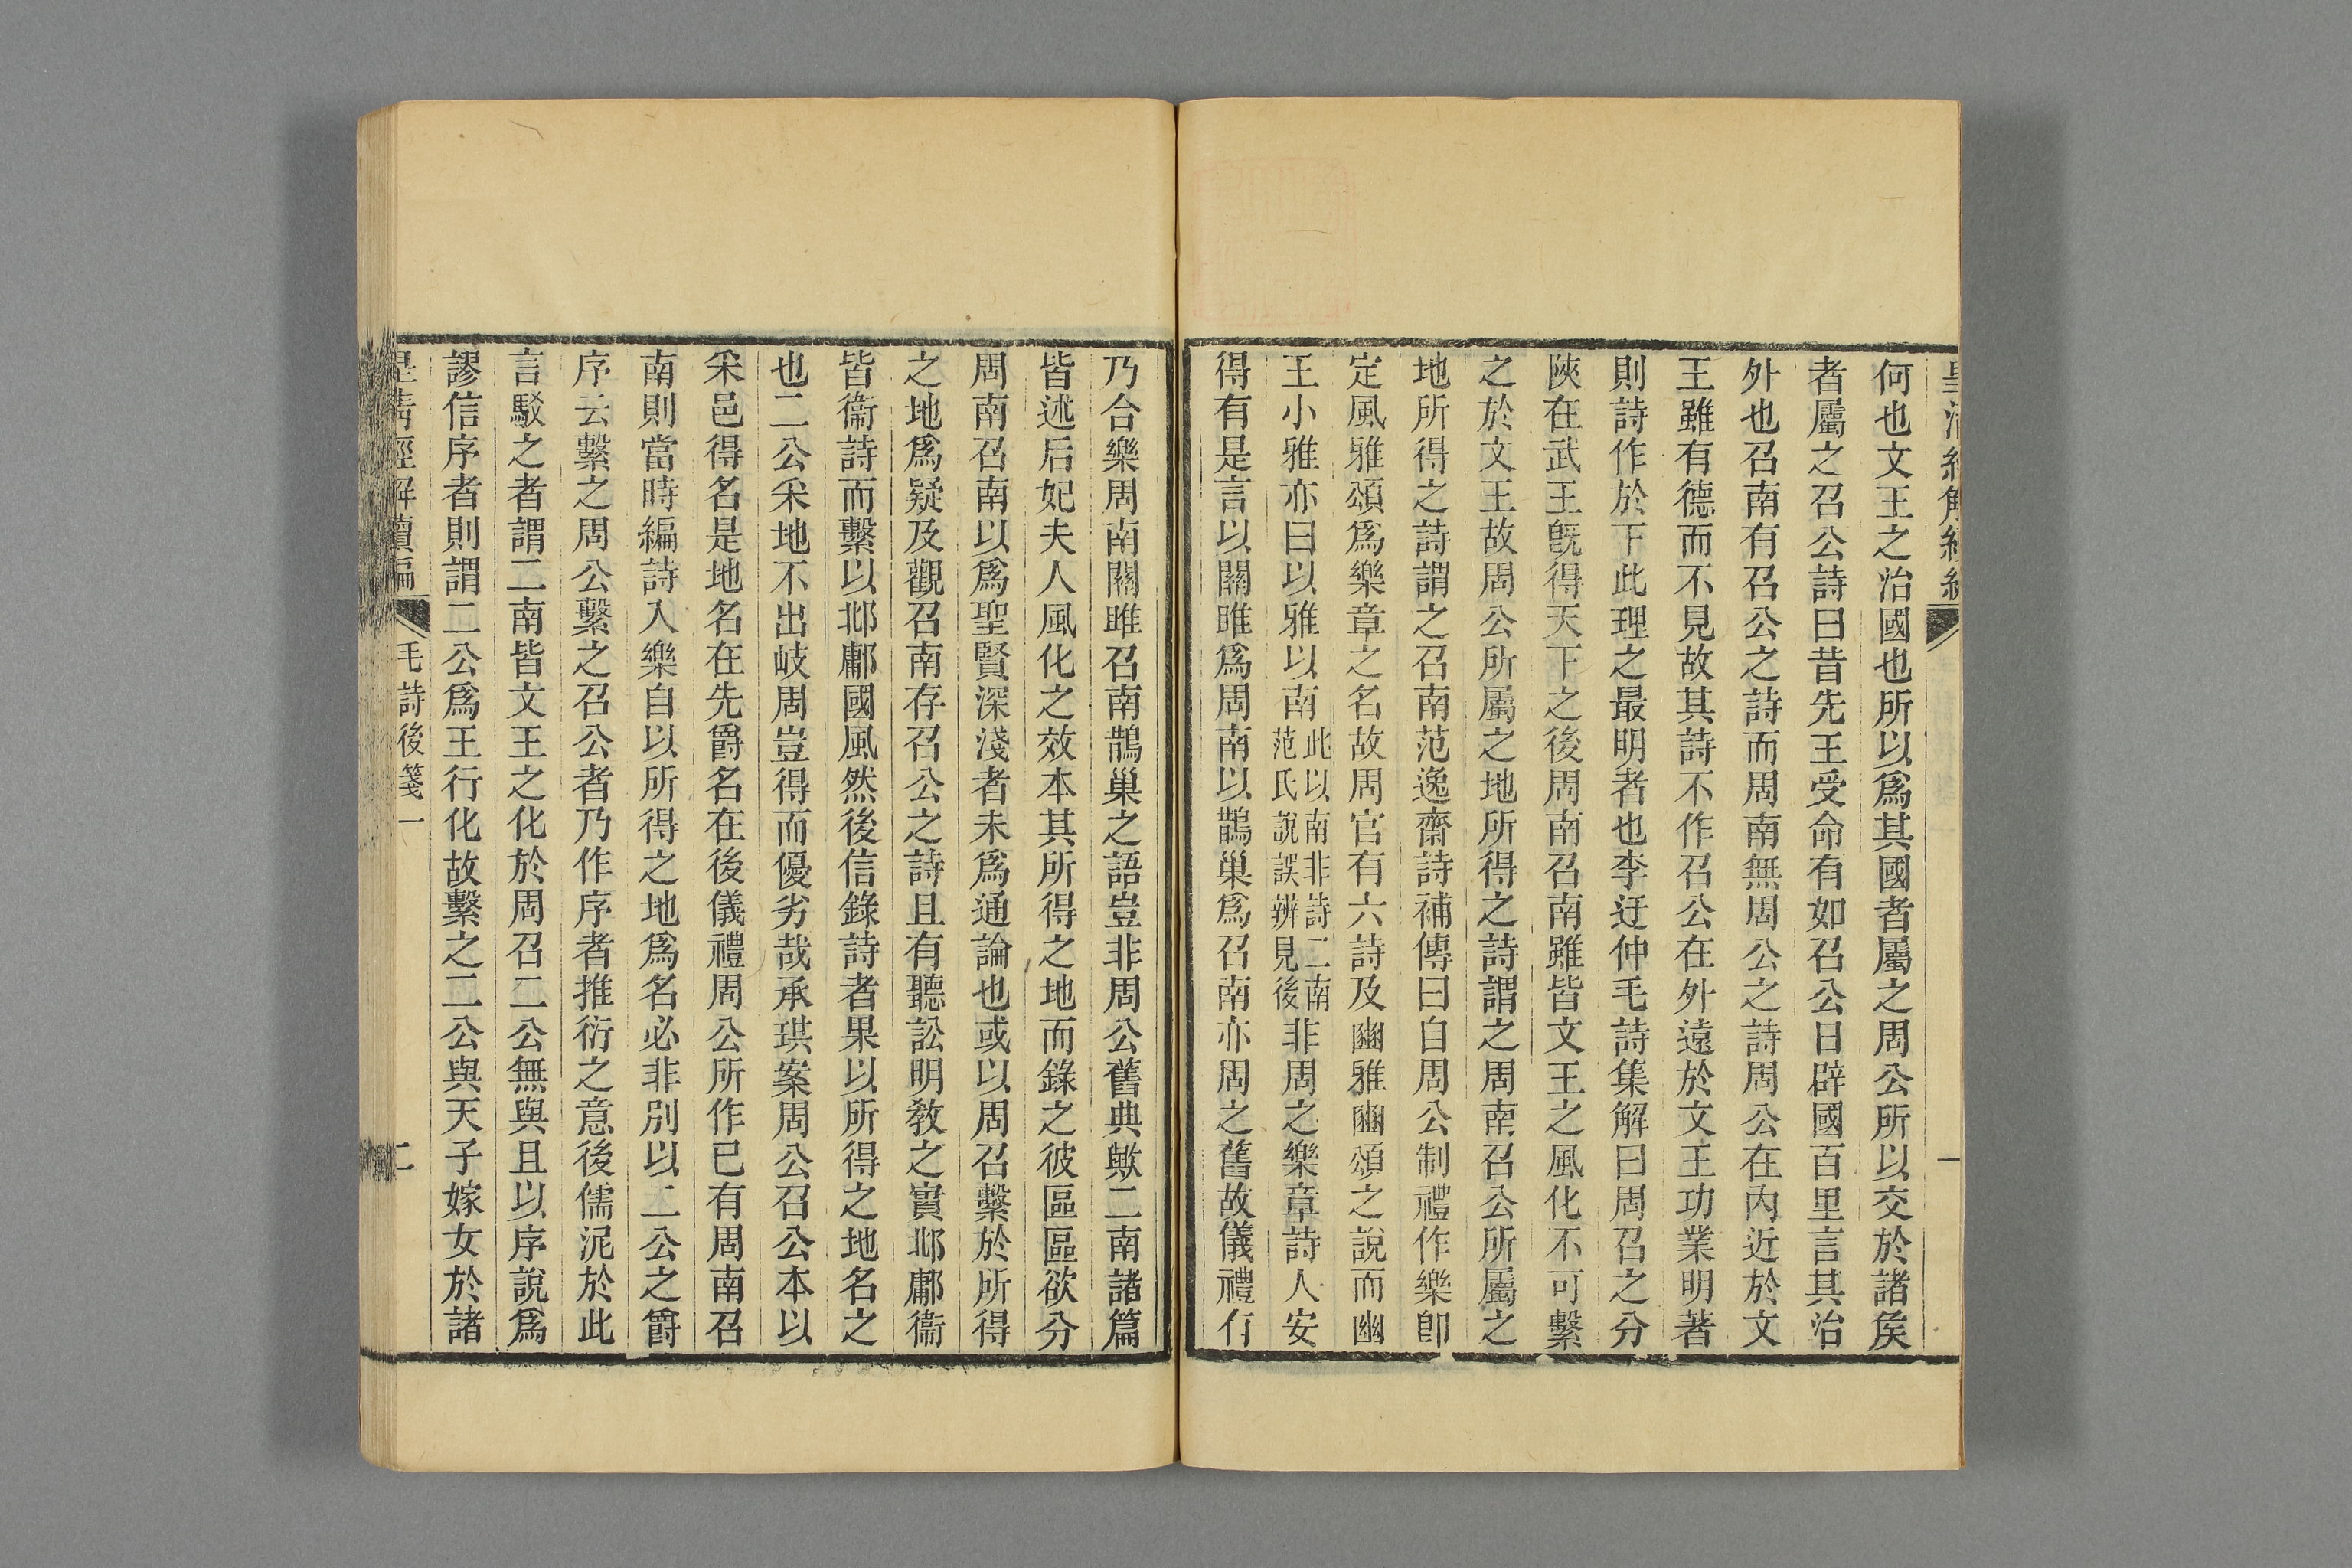 何也文王之治國也所以爲其國者屬之周公所以交於諸矦
者屬之召公詩曰昔先王受命有如召公日辟國百里言其治
外也召南有召公之詩而周南無周公之詩周公在內近於文
王雖有德而不見故其詩不作召公在外遠於文王功業明著
則詩作於下此理之最明者也李迂仲毛詩集解曰周召之分
陝在武王旣得天下之後周南召南雖皆文王之風化不可繫
之於文王故周公所屬之地所得之詩謂之周南召公所屬之
地所得之詩謂之召南范逸齋詩補傳曰自周公制禮作樂卽
定風雅頌爲樂章之名故周官有六詩及豳雅豳頌之說而幽
王小雅亦曰以雅以南此以南非詩二南范氏說誤辨見後非周之樂章詩人安
得有是言以關雎爲周南以鵲巢爲召南亦周之舊故儀禮有
乃合樂周南關雎召南鵲巢之語豈非周公舊典歟二南諸篇
皆述后妃夫人風化之效本其所得之地而錄之彼區區欲分
周南召南以爲聖賢深淺者未爲通論也或以周召繫於所得
之地爲疑及觀召南存召公之詩且有聽訟明敎之實邶鄘衞
皆衞詩而繫以邶鄘國風然後信錄詩者果以所得之地名之
也二公采地不出岐周豈得而優劣哉承珙案周公召公本以
采邑得名是地名在先爵名在後儀禮周公所作已有周南召
南則當時編詩入樂自以所得之地爲名必非別以二公之爵
序云繫之周公繫之召公者乃作序者推衍之意後儒泥於此
言駁之者謂二南皆文王之化於周召二公無與且以序說爲
謬信序者則謂二公爲王行化故繫之二公與天子嫁女於諸
皇淸經解續編 毛詩後箋一 二